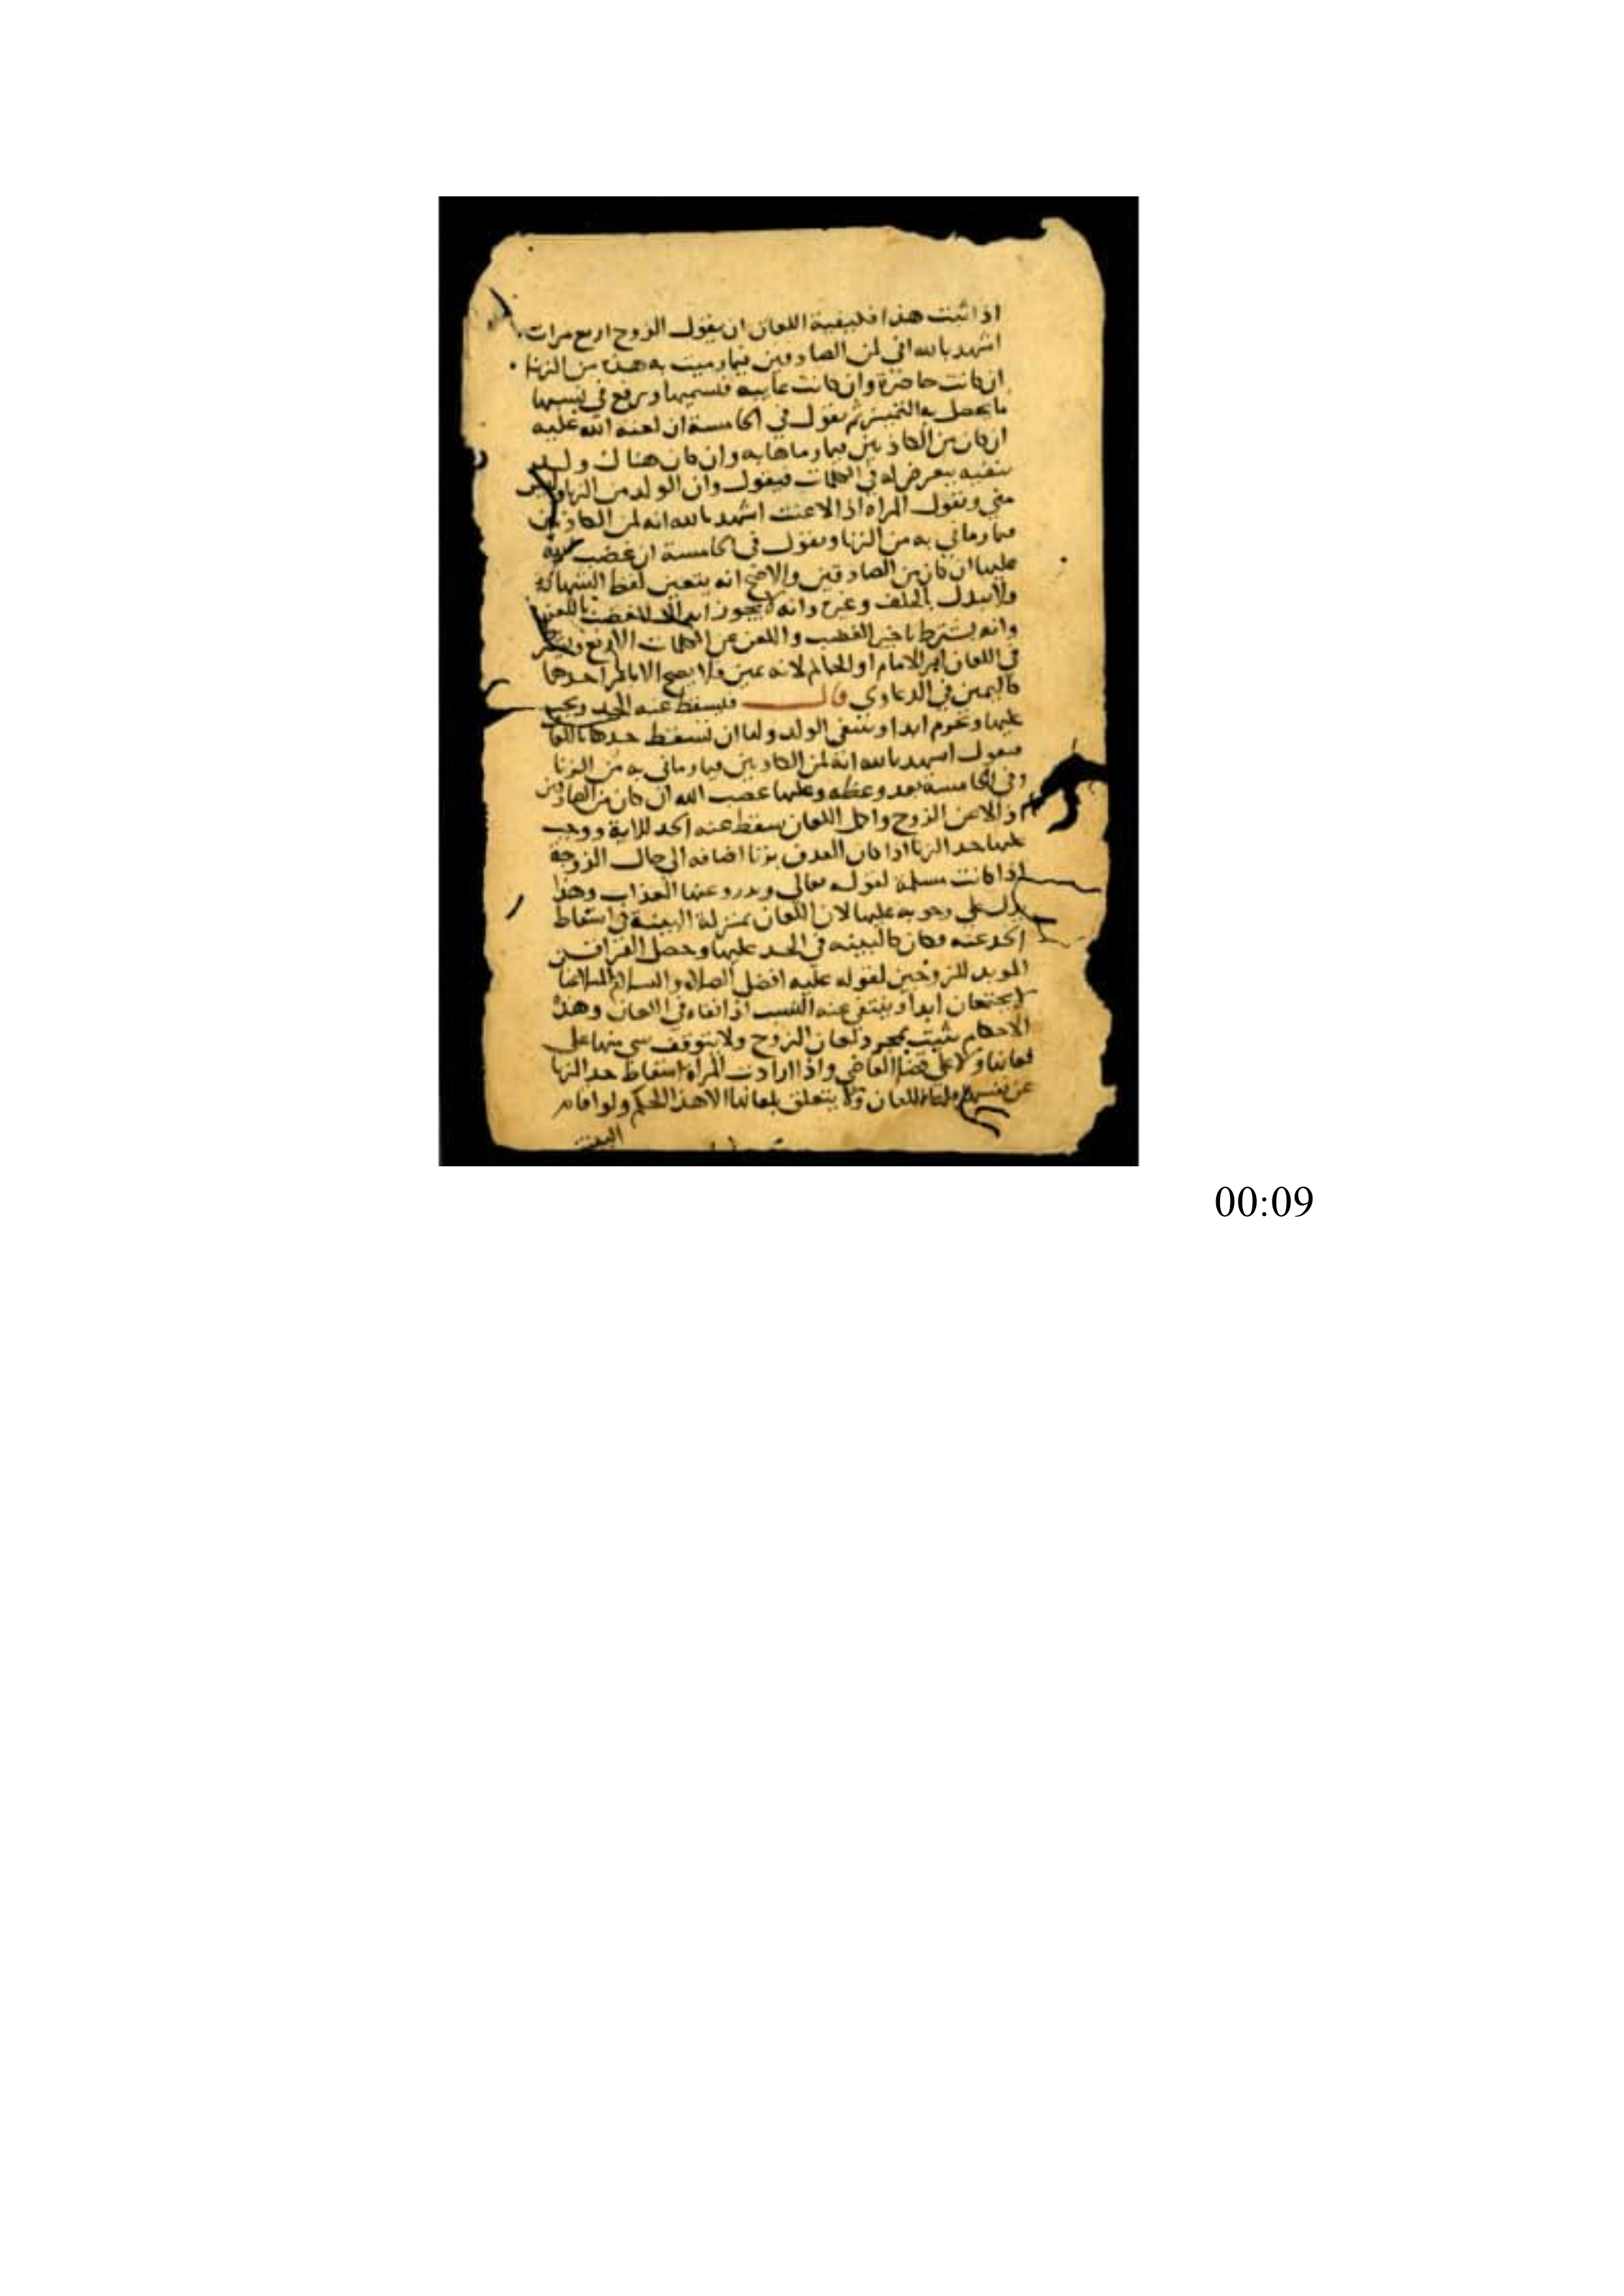 اذا ثبت هذا فكيفية اللعان ان يقول الزوج اربع مرات
اشهد بالله اني لمن الصادقين فيما رميت به هذه من الزنا
ان كانت حاضرة وان كانت غايبه فيسميها ويرفع في نسبها
ما يحصل به التمييز ثم يقول في الخامسة ان لعنه الله عليه
ان كان من الكاذبين فيما رماها به وان كان هناك ولد
ينفيه يتعرض له في الكلمات فيقول وان الولد من الزنا وليس
مني وتقول المراه اذا لاعنت اشهد بالله انه لمن الكاذبين
فيما رماني به من الزنا وتقول في الخامسة ان غضب الله
عليها ان كان من الصادقين والاصح انه يتعين لفظ الشهادة
ولا يبدل بالحلف وغيره وانه لا يجوز ابدال الغضب باللعن
وانه يشترط تاخير الغضب واللعن عن الكلمات الاربع ويشترط
في اللعان امر الامام او الحاكم لانه يمين ولا يصح الا بامر احدهما
كاليمين في الدعاوي قال فيسقط عنه الحد ويجب
عليها وتحرم ابدا وينتفي الولد ولها ان تسقط حدها باللعان
فتقول اشهد بالله انه لمن الكاذبين فيما رماني به من الزنا
وفي الخامسة بعد وعظه وعليها غضب الله ان كان من الصادقين
اذا لاعن الزوج واكمل اللعان سقط عنه الحد للاية ووجب
عليها حد الزنا اذا كان القذف بزنا اضافه الى حال الزوجة
اذا كانت مسلمة لقوله تعالى ويدروا عنها العذاب وهذا
يدل على وجوبه عليها لان اللعان بمنزلة البينة في اسقاط
الحد عنه فكان كالبينه في الحد عليها وحصل الفراق
الموبد للزوجين لقوله عليه افضل الصلاه والسلام المتلاعنان
لا يجتمعان ابدا وينتفي عنه النسب اذا نفاه في اللعان وهذه
الاحكام تثبت بمجرد لعان الزوج ولا يتوقف شي منها على
لعانها ولا على قضا القاضي واذا ارادت المراه اسقاط حد الزنا
عن نفسها فلها اللعان ولا يتعلق بلعانها الا هذا الحكم ولو اقام
البينة
00:09